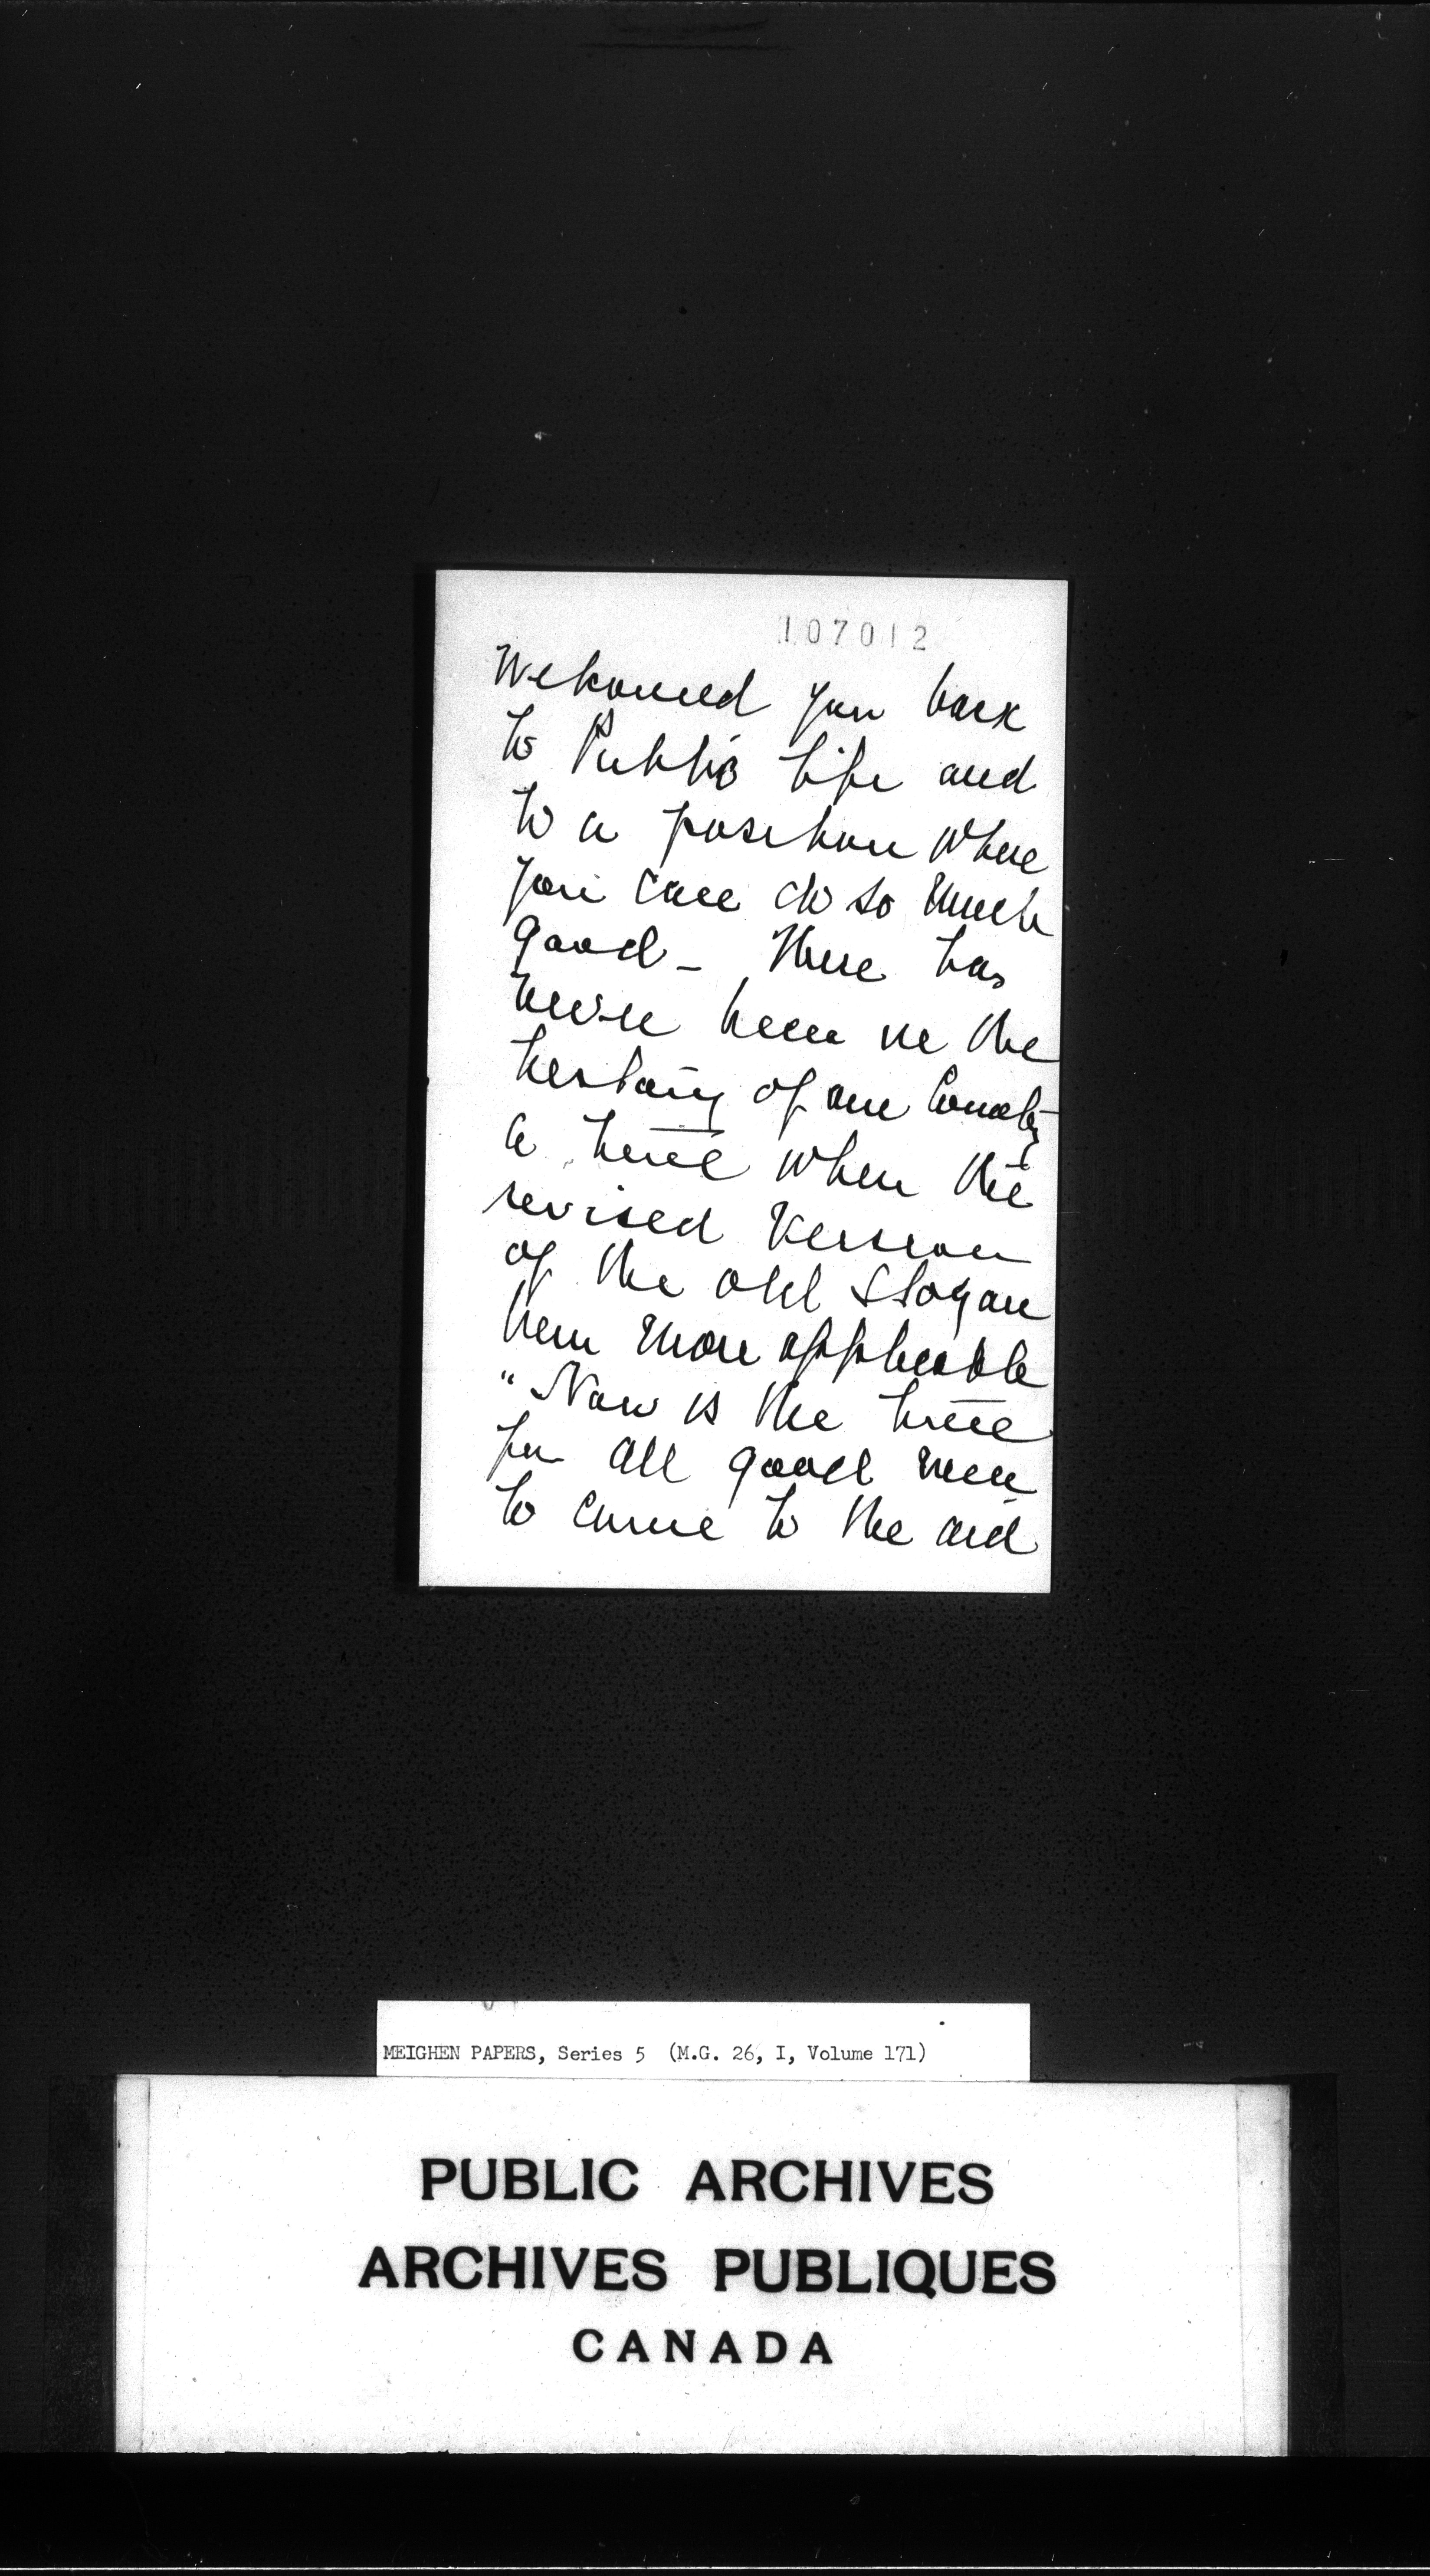 107012
Welcomed you back
to Public life and
to a position where
you can do so much
good - There has
never been in the
history of our Country
a time when the
revised version
of the old slogan
been more applicable
"Now is the time
for all good men
to come to the aid
MEIGHEN PAPERS, Series 5 (M.G. 26, I, Volume 171)
PUBLIC ARCHIVES
ARCHIVES PUBLIQUES
CANADA